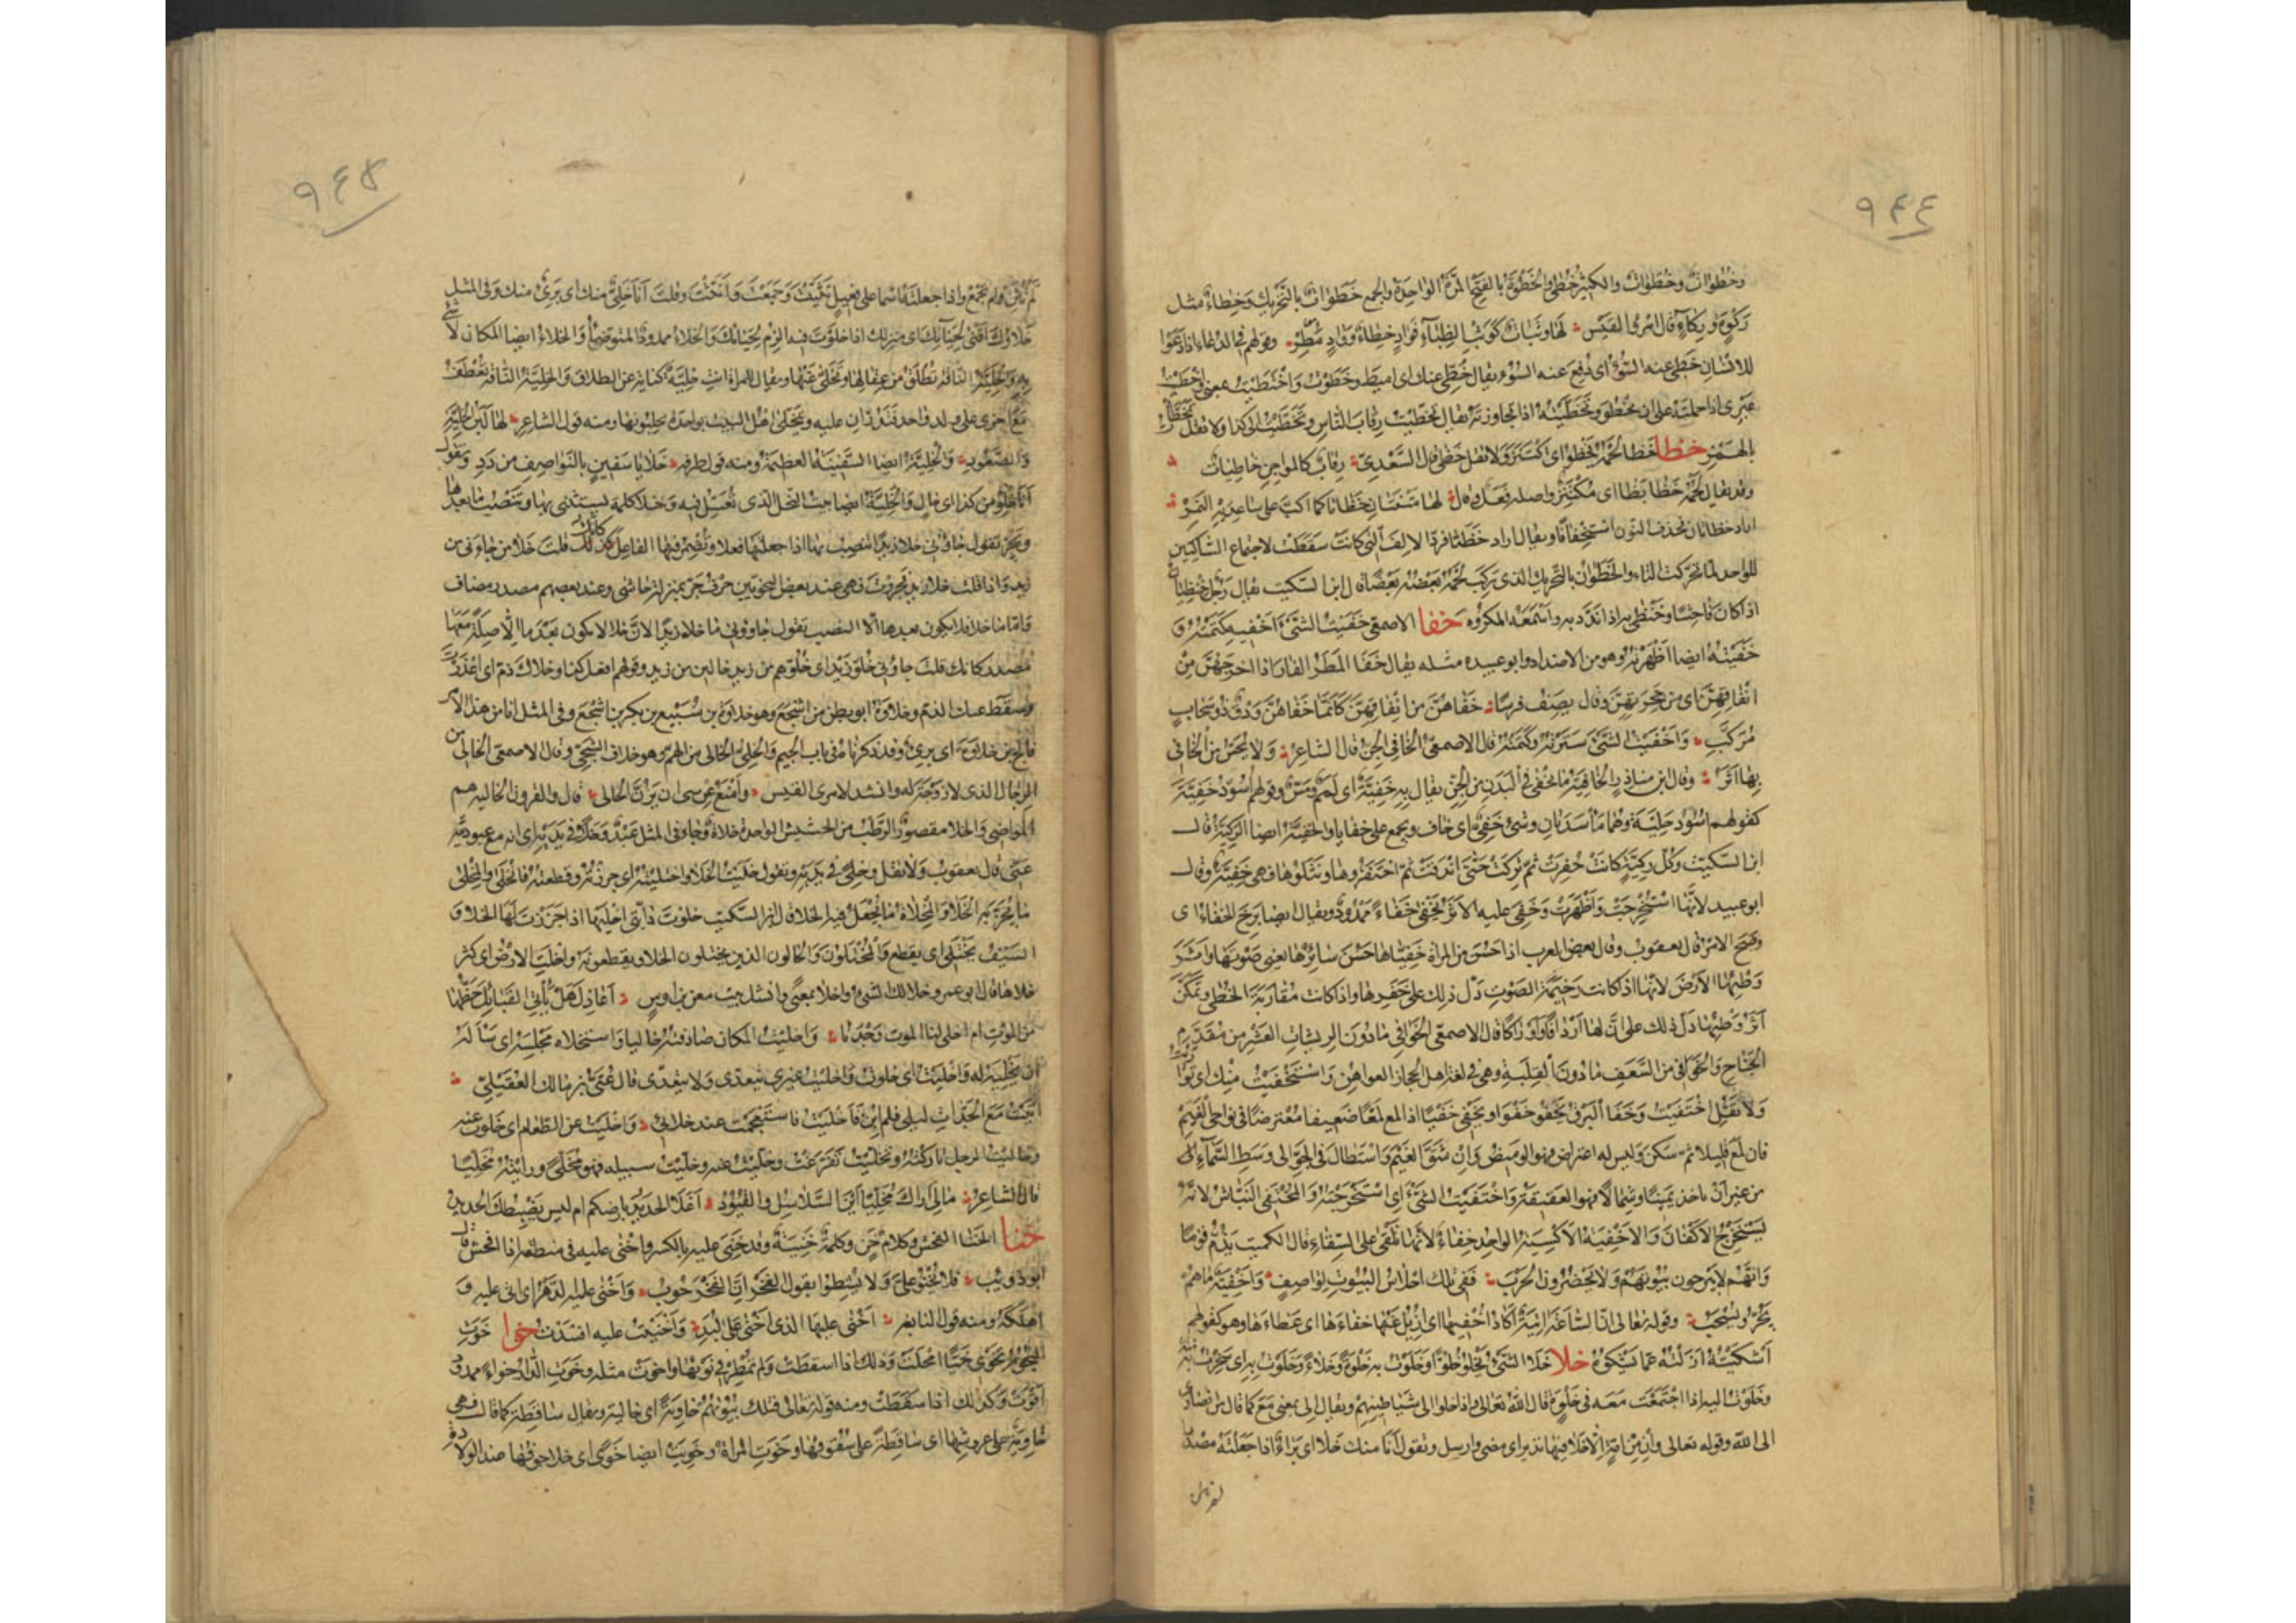 ٩٤٤
وخُطُوات وخُطَوات والكثير خُطًى والخَطْوة بالفتح المرّة الواحدة والجمع خَطَوات بالتحريك وخِطاء مثل
رَكْوة وركاء قال امرؤ القيس لها وثبات كوثب الظباء فواد خِطاء وواد مُطِر وقولهم في الدعاء اذا دعوا
للانسان خُطّى عنه السوء اى دفع عنه السوء يقال خُطّى عنك اى اميط وخطوت واختطيت بمعنى واخطيت
غيرى اذا حملته على ان يخطو وتخطّيته اذا تجاوزته يقال تخطّيت رقاب الناس وتخطّيت الى كذا ولا تقل تخطّأت
بالهمز خظا خظا لحمه يخظو اى اكتنز ولا تقل خظى قال السعدىّ رقاب كالمواجن خاظيات
وقد يقال لحمه خظا بظا اى مكتنز واصله فعل وقال لها متنتان خظاتا كما اكبّ على ساعديه النمر
اراد خظاتان فحذف النون استخفافا ويقال اراد خظتا فردّ الالف التى كانت سقطت لاجتماع الساكنين
للواحد لما تحركت التاء والخظوان بالتحريك الذى ركب لحمه بعضه بعضا قال ابن السكيت يقال رجل خنظيان
اذا كان فاحشا وخنظى به اذا ندّد به واسمعه المكروه خفا الاصمعى خفيت الشئ اخفيه كتمته و
خفيته ايضا اظهرته وهو من الاضداد وابو عبيدة مثله يقال خفا المطر الفار اذا اخرجهن من
انفاقهن اى من جحرتهن وقال يصف فرسا خفاهن من انفاقهن كانما خفاهن ودق ذو سحاب
مركب واخفيت الشئ سترته وكتمته قال الاصمعى الخافى الجن قال الشاعر ولا يحس من الخافى
بها اثر وقال ابن مناذر الخافية ما يخفى فى البدن من الجن يقال به خفية اى لمم ومس وقولهم اسود خفية
كقولهم اسود حلية وهما مأسدتان وشئ خفى اى خاف ويجمع على خفايا والخفية ايضا الركية قال
ابن السكيت وكل ركية كانت حفرت ثم تركت حتى اندفنت ثم احتفروها ونثلوها فهى خفية وقال
ابو عبيد لانها استخرجت واظهرت وخفى عليه الامر يخفى خفاء ممدود ويقال ايضا برح الخفاء اى
وضح الامر قال يعقوب وقال بعض العرب اذا حسن من المراة خفياها حسن سائرها يعنى صوتها واثر
وطئها الارض لانها اذا كانت رخيمة الصوت دل ذلك على خفرها واذا كانت مقاربة الخطى وتمكن
اثر وطئها دل ذلك على ان لها اردافا واوراكا قال الاصمعى الخوافى ما دون الريشات العشر من مقدم
الجناح والخوافى من السعف ما دون القلبة وهى فى لغة اهل الحجاز العواهن واستخفيت منك اى تواريت
ولا تقل اختفيت وخفا البرق يخفو خفوا ويخفى خفيا اذا لمع لمعا ضعيفا معترضا فى نواحى الغيم
فان لمع قليلا ثم سكن وليس له اعتراض فهو الوميض وان شق الغيم واستطال فى الجو الى وسط السماء
من غير ان ياخذ يمينا وشمالا فهو العقيقة واختفيت الشئ اى استخرجته والمختفى النباش لانه
يستخرج الاكفان والاخفية الاكسية الواحد خفاء لانها تلقى على السقاء قال الكميت يذم قوما
وانهم لا يبرحون بيوتهم ولا يحضرون الحرب ففى تلك احلاس البيوت لواصف واخفية ما هم
تجر وتسحب وقوله تعالى ان الساعة اتية اكاد اخفيها اى ازيل عنها خفاءها اى غطاءها وهو كقولهم
اشكيته ازلته عما يشكوه خلا خلا الشئ يخلو خلوا وخلوت به خلوة وخلاء وخلوت به اى سخرت به
وخلوت اليه اذا اجتمعت معه فى خلوة قال الله تعالى واذا خلوا الى شياطينهم ويقال الى بمعنى مع كما قال من انصارى
الى الله وقوله تعالى وان من امة الا خلا فيها نذير اى مضى وارسل وتقول انا منك خلاء اى براء اذا جعلته مصدرا
٩٤٥
لم تثن ولم تجمع واذا جعلته اسما على فعيل ثنيت وجمعت وانثت وقلت انا خلى منك اى برئ منك وفى المثل
خلاؤك اقنى لحيائك اى منزلك اذا خلوت فيه الزم لحيائك والخلاء ممدودا المتوضأ والخلاء ايضا المكان لا شئ
به والخلية الناقة تطلق من عقالها ويخلى عنها ويقال للمراة انت خلية كناية عن الطلاق والخلية الناقة تعطف
مع اخرى على ولد واحد فتدران عليه ويتخلى اهل البيت بواحدة يحلبونها ومنه قول الشاعر لها لبن الخلية
والصعود والخلية ايضا السفينة العظيمة ومنه قول طرفة خلايا سفين بالنواصف من دد وتقول
انا خلو من كذا اى خال والخلية ايضا بيت النحل الذى تعسل فيه وخلا كلمة يستثنى بها وتنصب ما بعدها
وتجر تقول جاؤنى خلا زيدا تنصب بها اذا جعلتها فعلا وتضمر فيها الفاعل كانك قلت خلا من جاءنى من
زيد واذا قلت خلا زيد فجررت فهى عند بعض النحويين حرف جر بمنزلة حاشى وعند بعضهم مصدر مضاف
واما ما خلا فلا يكون بعدها الا النصب تقول جاؤونى ما خلا زيدا لان خلا لا يكون بعد ما الا صلة معها
مصدر كانك قلت جاؤنى خلو زيد اى خلوهم من زيد خالين من زيد وقولهم افعل كذا وخلاك ذم اى اعذرت
وسقط عنك الذم وخلاوة ابو بطن من اشجع وهو خلاوة بن سبيع بن بكر بن اشجع وفى المثل انا من هذا الامر
فالج بن خلاوة اى برئ وقد ذكرناه فى باب الجيم والخلى الخالى من الهم وهو خلاف الشجى وقال الاصمعى الخالى من
الرجال الذى لا زوجة له وانشد لامرئ القيس وامنع عرسى ان يزن الخالى قال والقرون الخالية هم
المواضى والخلا مقصور الرطب من الحشيش الواحدة خلاة وجاء فى المثل عبد وخلا فى يديه اى انه مع عبوديته
غنى قال يعقوب ولا تقل وحلى فى يديه وتقول خليت الخلا واختليته اى جززته وقطعته فانخلى والمخلى
ما يجز به الخلا والمخلاة ما يجعل فيه الخلا قال ابن السكيت خلوت دابتى اخليها اذا جززت لها الخلا و
السيف يختلى اى يقطع والمختلون والخالون الذين يختلون الخلا ويقطعونه واخلت الارض اى كثر
خلاها قال ابو عمرو خلا لك الشئ واخلا بمعنى وانشد بيت معن بن اوس اعاذل هل ياتى القبائل حظها
من الموت ام اخلى لنا الموت وحدنا واخليت المكان صادفته خاليا واستخلاه مجلسه اى ساله
ان يخليه له واخليت اى خلوت واخليت غيرى يتعدى ولا يتعدى قال عتى بن مالك العقيلى
اتيت مع الحداث ليلى فلم ابن فاخليت فاستعجمت عند خلائى واخليت عن الطعام اى خلوت عنه
وخاليت الرجل تاركته وتخليت تفرغت وخليت عنه وخليت سبيله فهو مخلى ورايته مخليا
قال الشاعر مالى اراك مخليا اين السلاسل والقيود اغلا الحديد بارضكم ام ليس يضبطك الحديد
خنا الخنا الفحش وكلام خن وكلمة خنية وقد خنى عليه بالكسر واخنى عليه فى منطقه اذا افحش قال
ابو ذويب فلا تخنوا على ولا تشطوا بقول الفخر ان الفخر حوب واخنى عليه الدهر اى اتى عليه و
اهلكه ومنه قول النابغة اخنى عليها الذى اخنى على لبد واخنيت عليه افسدت خوا خوت
النجوم تخوى خيا امحلت وذلك اذا سقطت ولم تمطر فى نوئها واخوت مثله وخوت الدار خواء ممدود
اقوت وكذلك اذا سقطت ومنه قوله تعالى فتلك بيوتهم خاوية اى خالية ويقال ساقطة كما قال فهى
خاوية على عروشها اى ساقطة على سقوفها وخوت المراة وخويت ايضا خوى اى خلا جوفها عند الولادة